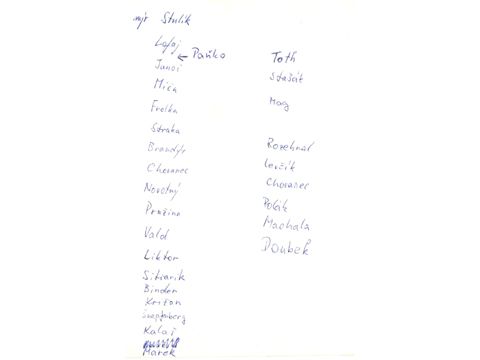 mjr Stulík
Lafaj
← Paňko
Janoi
Miča
Frolka
Straka
Brandýs
Chovanec
Novotný
Pružina
Valo
Liktor
Sitiarik
Binder
Krištan
Kalaš
Marek
Toth
Stašák
Mag
Rozehnal
Levčík
Chovanec
Polák
Machala
Doubek